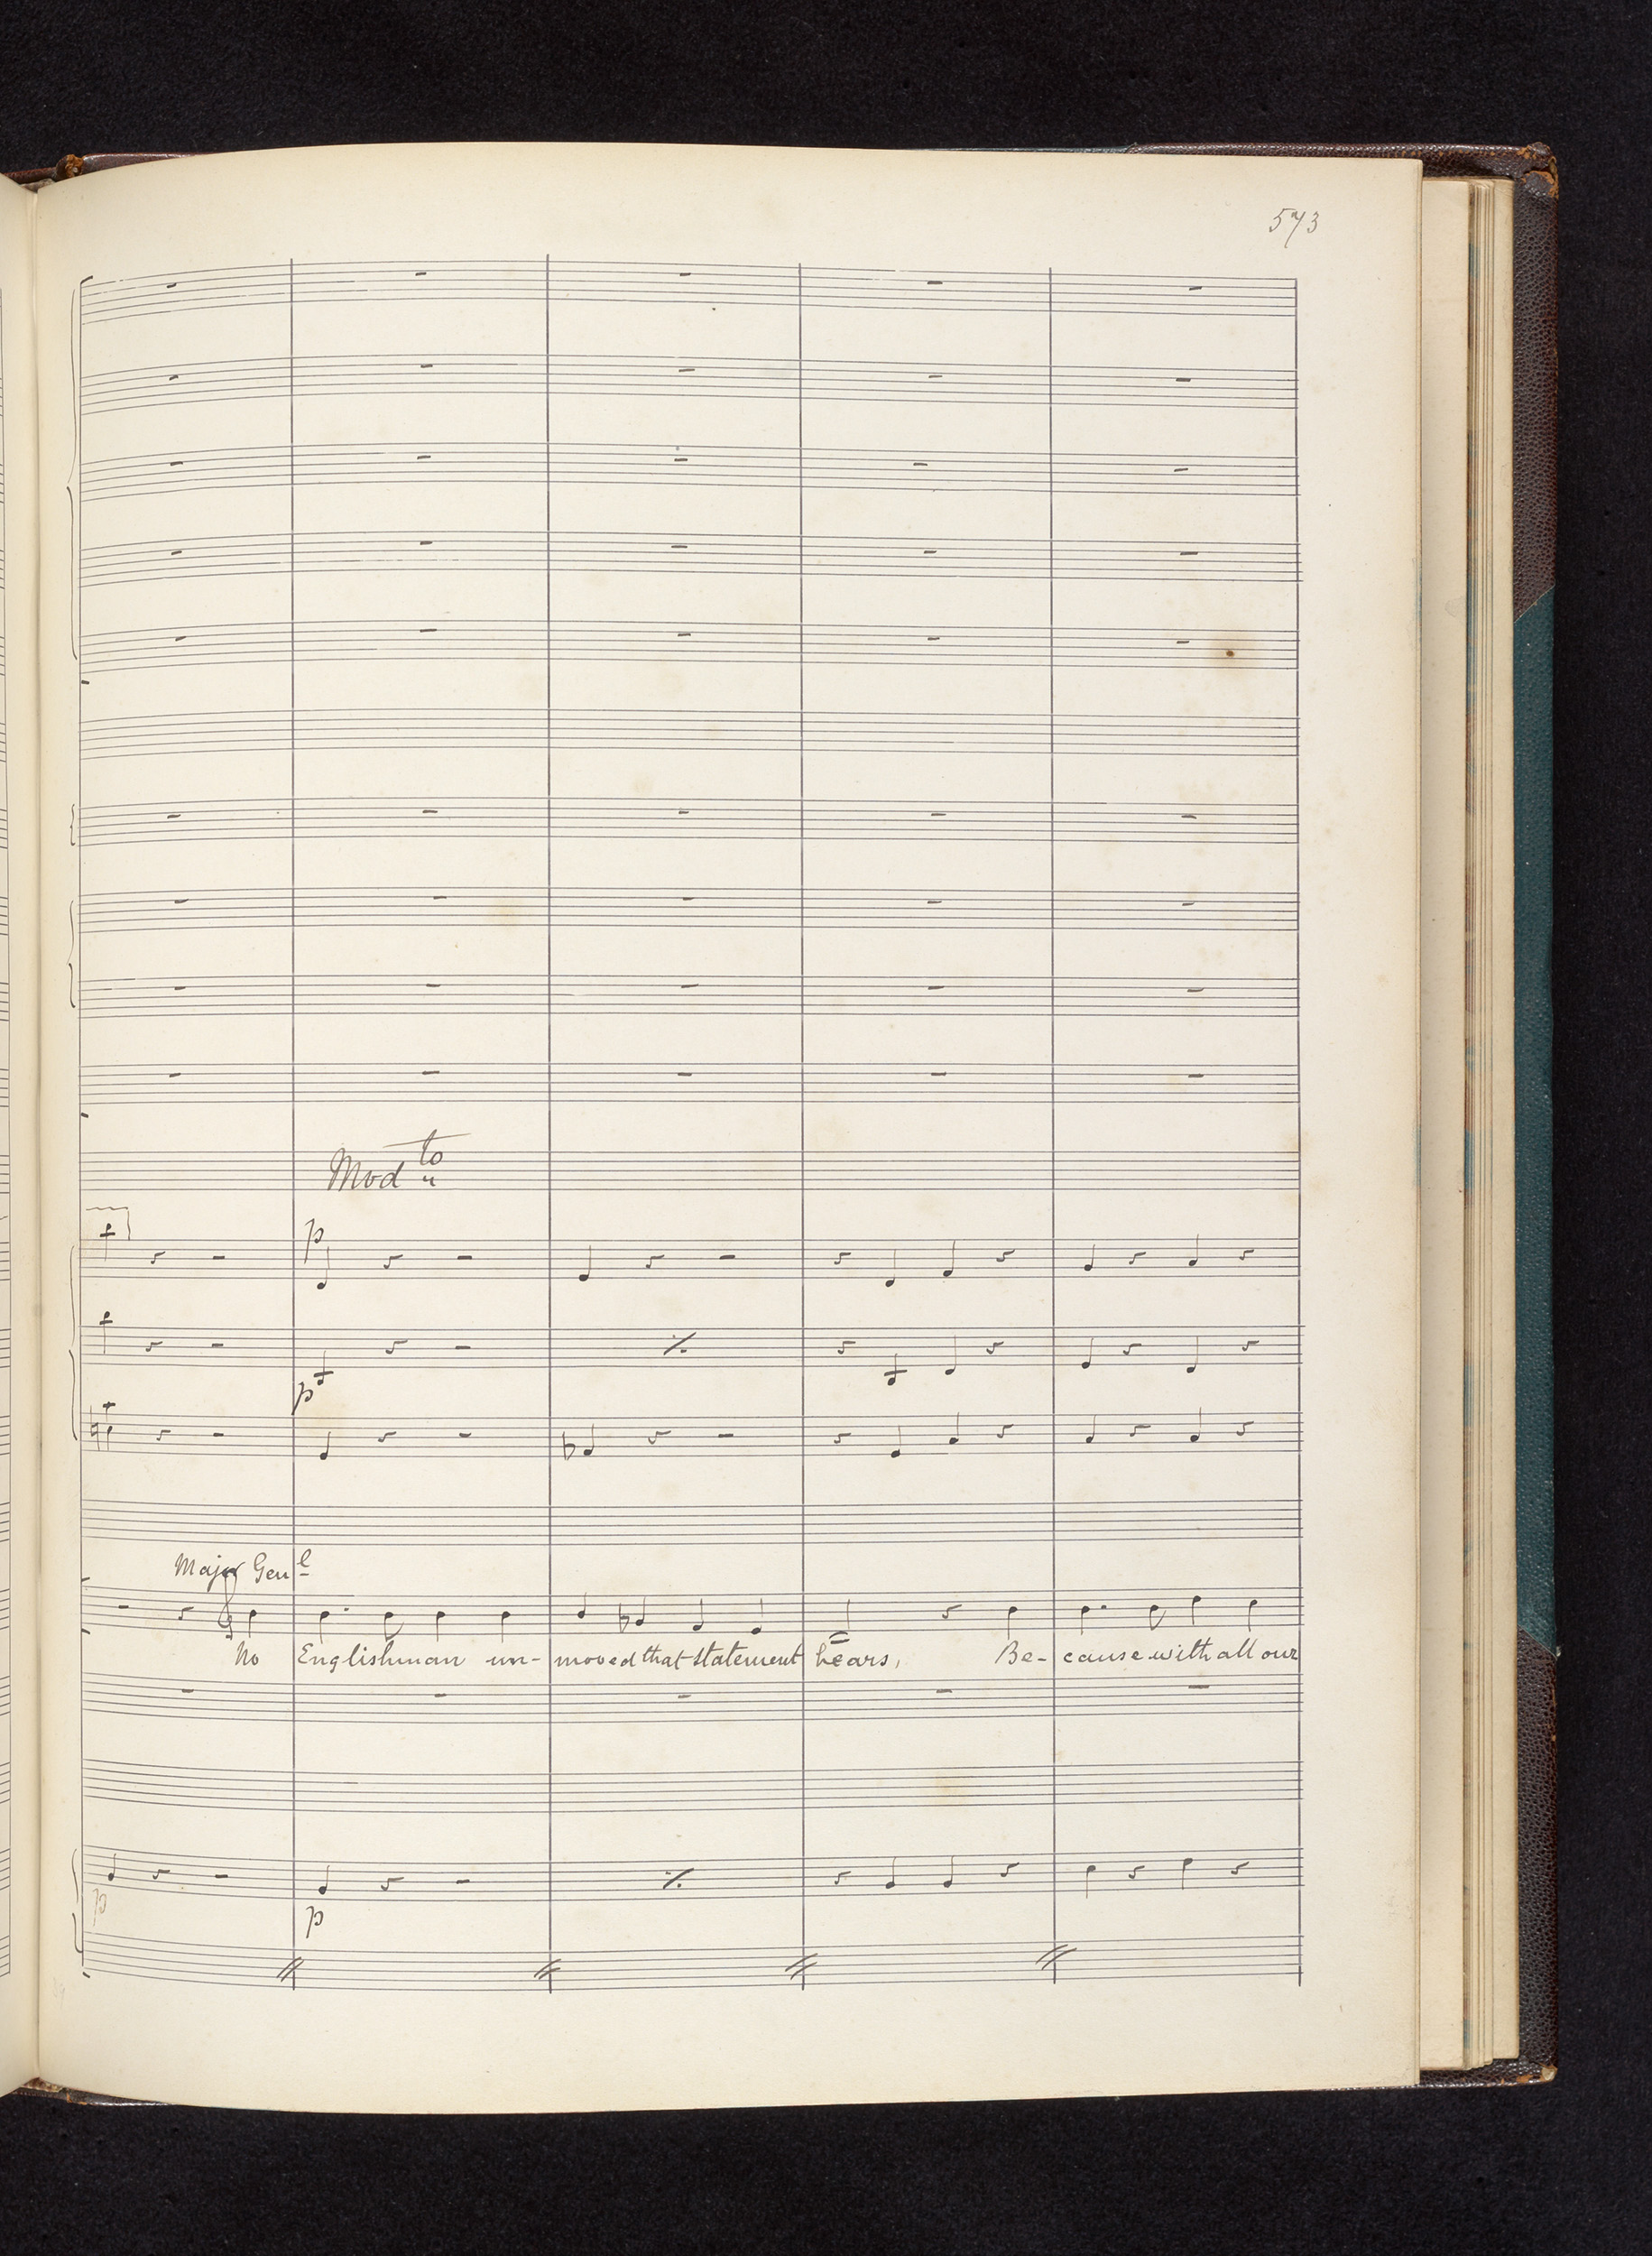 573
Modto
p
p
Major Genl
No Englishman un- moved that statement hears, Be- cause with all our
p
p